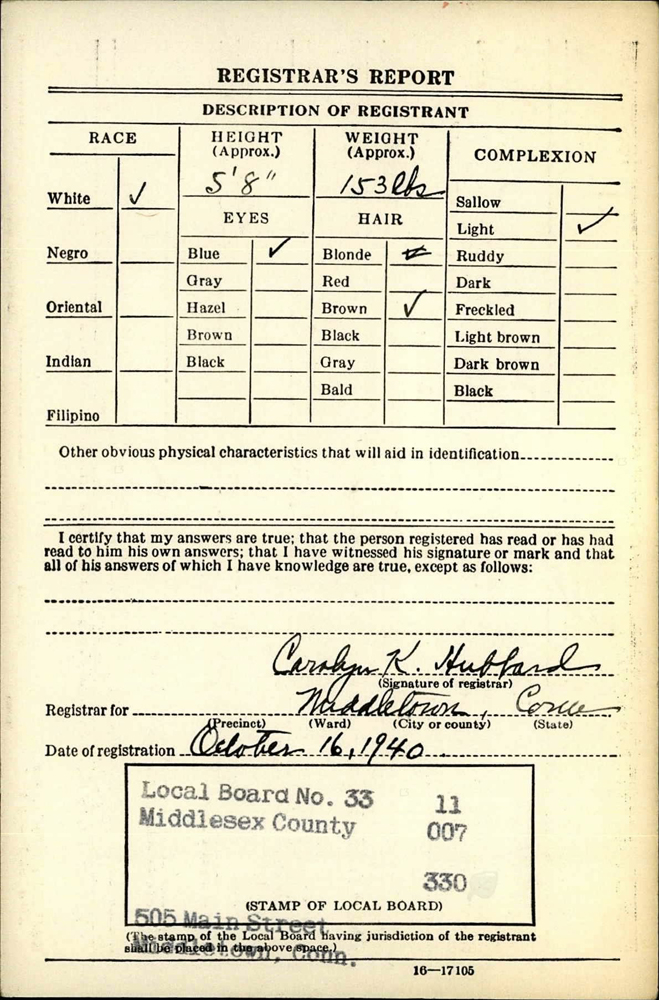 REGISTRAR'S REPORT
DESCRIPTION OF REGISTRANT
RACE
HEIGHT
(Approx.)
WEIGHT
(Approx.)
COMPLEXION
5'8"
153 lbs
White ✓
Sallow
EYES
HAIR
Light ✓
Negro
Blue ✓
Blonde
Ruddy
Gray
Red
Dark
Oriental
Hazel
Brown ✓
Freckled
Brown
Black
Light brown
Indian
Black
Gray
Dark brown
Bald
Black
Filipino
Other obvious physical characteristics that will aid in identification
I certify that my answers are true; that the person registered has read or has had
read to him his own answers; that I have witnessed his signature or mark and that
all of his answers of which I have knowledge are true, except as follows:
Carolyn K. Hubbard
(Signature of registrar)
Registrar for Middletown, Conn
(Precinct) (Ward) (City or county) (State)
Date of registration October 16, 1940
Local Board No. 33 11
Middlesex County 007
330
(STAMP OF LOCAL BOARD)
505 Main Street
(The stamp of the Local Board having jurisdiction of the registrant
shall be placed in the above space.)
Middletown, Conn.
16—17105